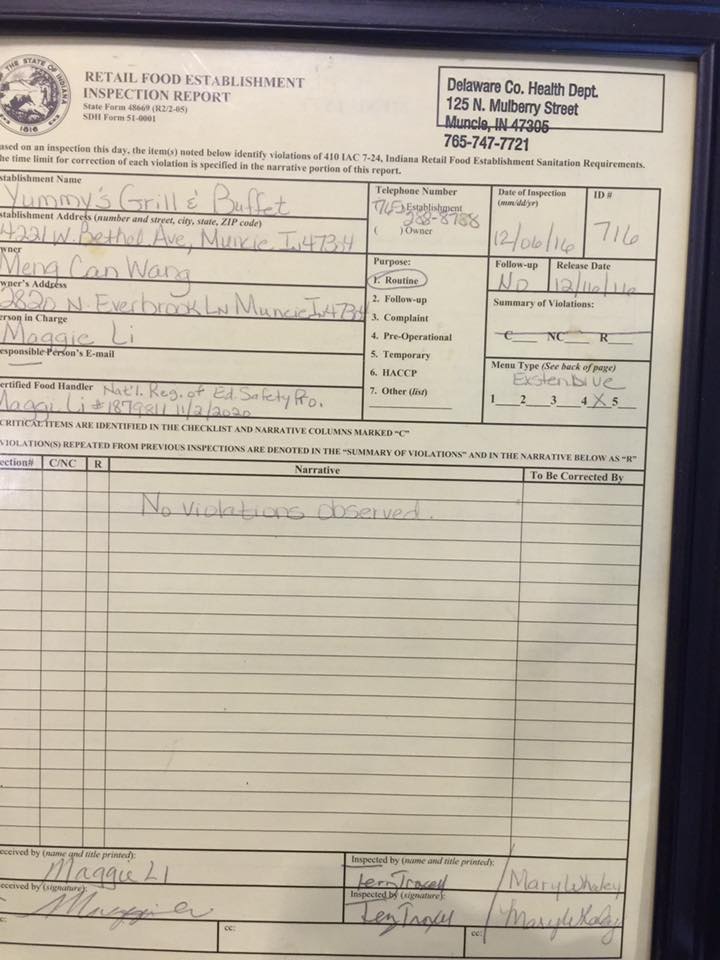 THE STATE OF INDIANA
1816
RETAIL FOOD ESTABLISHMENT
INSPECTION REPORT
State Form 48669 (R2/2-05)
SDH Form 51-0001
Delaware Co. Health Dept.
125 N. Mulberry Street
Muncie, IN 47305
765-747-7721
ased on an inspection this day, the item(s) noted below identify violations of 410 IAC 7-24, Indiana Retail Food Establishment Sanitation Requirements.
he time limit for correction of each violation is specified in the narrative portion of this report.
stablishment Name
Yummy's Grill & Buffet
stablishment Address (number and street, city, state, ZIP code)
4221 W. Bethel Ave, Muncie In 47304
wner
Meng Can Wang
wner's Address
2820 N. Everbrook Ln Muncie In 4730
erson in Charge
Maggie Li
esponsible Person's E-mail
ertified Food Handler Nat'l. Reg. of Fd. Safety Pro.
Maggi Li #1879811 11/2/2020
Telephone Number
(765) Establishment
288-8788
( ) Owner
Purpose:
1. Routine
2. Follow-up
3. Complaint
4. Pre-Operational
5. Temporary
6. HACCP
7. Other (list)
Date of Inspection
(mm/dd/yr)
12/06/16
ID #
716
Follow-up
No
Release Date
12/16/16
Summary of Violations:
C NC R
Menu Type (See back of page)
1 2 3 4 X 5
CRITICAL ITEMS ARE IDENTIFIED IN THE CHECKLIST AND NARRATIVE COLUMNS MARKED "C"
VIOLATION(S) REPEATED FROM PREVIOUS INSPECTIONS ARE DENOTED IN THE "SUMMARY OF VIOLATIONS" AND IN THE NARRATIVE BELOW AS "R"
ection# C/NC R Narrative To Be Corrected By
No violations observed.
eceived by (name and title printed):
Maggie Li
eceived by (signature):
Inspected by (name and title printed):
Terry Troxell / Mary Whaley
Inspected by (signature):
Terry Troxell / Mary Whaley
cc: cc: cc: